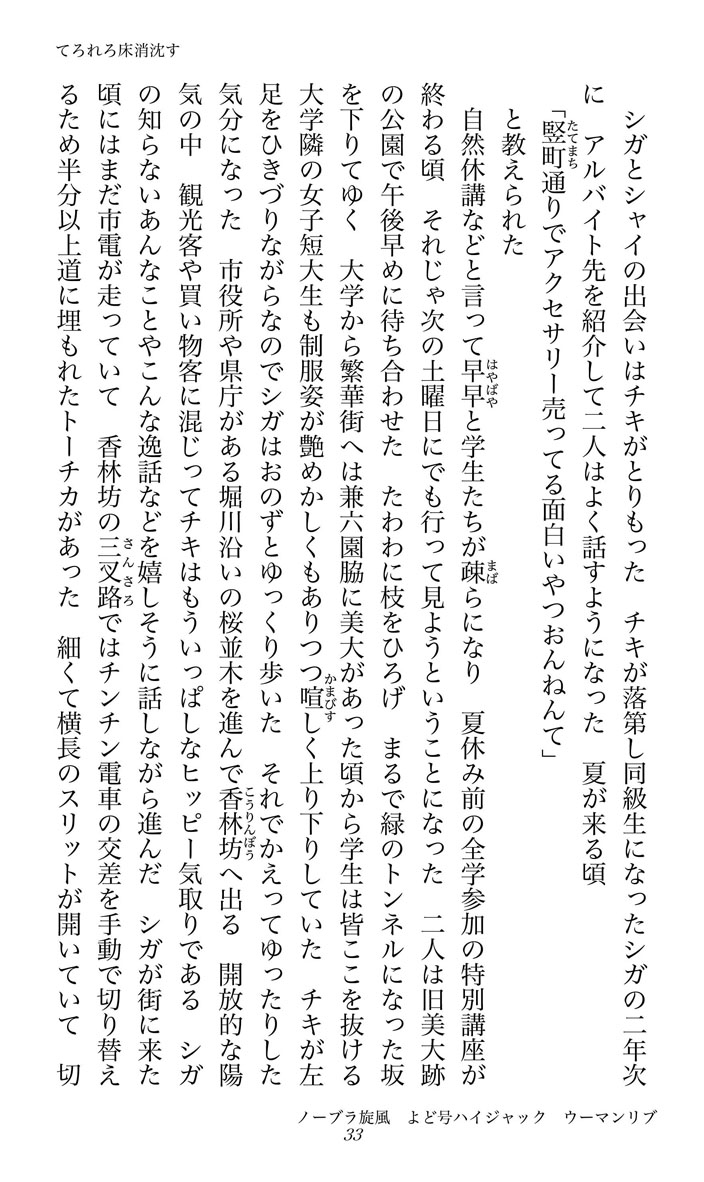 てろれろ床消沈す
シガとシャイの出会いはチキがとりもった　チキが落第し同級生になったシガの二年次
に　アルバイト先を紹介して二人はよく話すようになった　夏が来る頃
「竪町通りでアクセサリー売ってる面白いやつおんねんて」
たてまち
と教えられた
自然休講などと言って早早と学生たちが疎らになり　夏休み前の全学参加の特別講座が
はやばや
まば
終わる頃　それじゃ次の土曜日にでも行って見ようということになった　二人は旧美大跡
の公園で午後早めに待ち合わせた　たわわに枝をひろげ　まるで緑のトンネルになった坂
を下りてゆく　大学から繁華街へは兼六園脇に美大があった頃から学生は皆ここを抜ける
大学隣の女子短大生も制服姿が艶めかしくもありつつ喧しく上り下りしていた　チキが左
かまびす
足をひきづりながらなのでシガはおのずとゆっくり歩いた　それでかえってゆったりした
気分になった　市役所や県庁がある堀川沿いの桜並木を進んで香林坊へ出る　開放的な陽
こうりんぼう
気の中　観光客や買い物客に混じってチキはもういっぱしなヒッピー気取りである　シガ
の知らないあんなことやこんな逸話などを嬉しそうに話しながら進んだ　シガが街に来た
頃にはまだ市電が走っていて　香林坊の三叉路ではチンチン電車の交差を手動で切り替え
さんさろ
るため半分以上道に埋もれたトーチカがあった　細くて横長のスリットが開いていて　切
ノーブラ旋風　よど号ハイジャック　ウーマンリブ
33